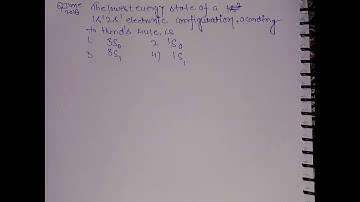 The lowest energy state of a
1s¹2s¹ electronic configuration, acording
to Hund's rule, is
1 3S₀ 2. ¹S₀
3 3S₁ 4) ¹S₁